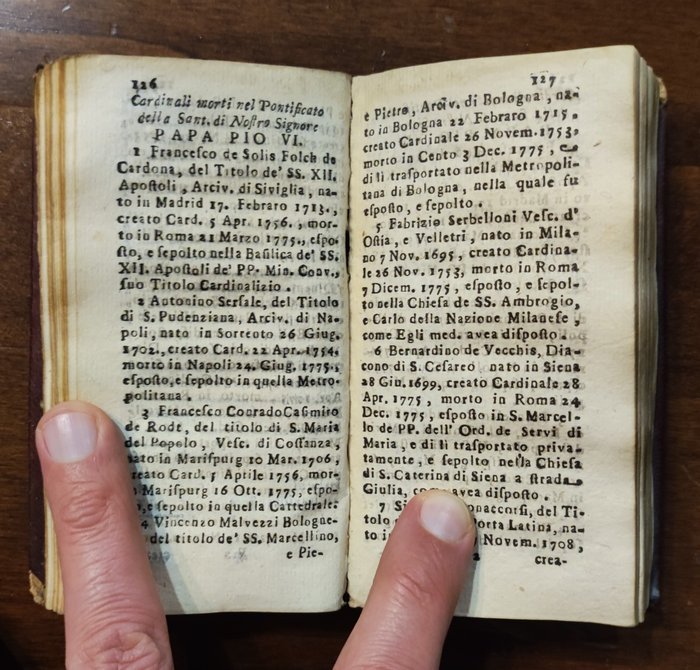 126
Cardinali morti nel Pontificato
della Sant. di Noſtro Signore
PAPA PIO VI.
1 Franceſco de Solis Folch de
Cardona, del Titolo de' SS. XII.
Apoſtoli, Arciv. di Siviglia, na-
to in Madrid 17. Febraro 1713.,
creato Card. 5 Apr. 1756., mor-
to in Roma 21 Marzo 1775., eſpo
ſto, e ſepolto nella Baſilica de' SS.
XII. Apoſtoli de' PP. Min. Conv.,
ſuo Titolo Cardinalizio.
2 Antonino Serſale, del Titolo
di S. Pudenziana, Arciv. di Na-
poli, nato in Sorrento 26 Giug.
1702., creato Card. 22 Apr. 1754.
morto in Napoli 24. Giug. 1775.,
eſpoſto, e ſepolto in quella Metro-
politana.
3 Franceſco Conrado Caſimiro
de Rodt, del titolo di S. Maria
del Popolo, Veſc. di Coſtanza,
nato in Mariſpurg 10 Mar. 1706,
creato Card. 5 Aptile 1756, mor-
Mariſpurg 16 Ott. 1775, eſpo-
e ſepolto in quella Cattedrale.
4 Vincenzo Malvezzi Bologne-
del titolo de' SS. Marcellino,
e Pie-
127
e Pietro, Arciv. di Bologna, na-
to in Bologna 22 Febraro 1715,
creato Cardinale 26 Novem. 1753,
morto in Cento 3 Dec. 1775, e
di lì traſportato nella Metropoli-
tana di Bologna, nella quale fu
eſpoſto, e ſepolto.
5 Fabrizio Serbelloni Veſc. d'
Oſtia, e Velletri, nato in Mila-
no 7 Nov. 1695, creato Cardina-
le 26 Nov. 1753, morto in Roma
7 Dicem. 1775, eſpoſto, e ſepol-
to nella Chieſa de SS. Ambrogio,
e Carlo della Nazione Milaneſe,
come Egli med. avea diſpoſto.
6 Bernardino de Vecchis, Dia-
cono di S. Ceſareo, nato in Siena
28 Giu. 1699, creato Cardinale 28
Apr. 1775, morto in Roma 24
Dec. 1775, eſpoſto in S. Marcel-
lo de PP. dell' Ord. de Servi di
Maria, e di lì traſportato priva-
tamente, e ſepolto nella Chieſa
di S. Caterina di Siena a ſtrada
Giulia, avea diſpoſto.
7 del Ti-
tolo Porta Latina, na-
to Novem. 1708,
crea-